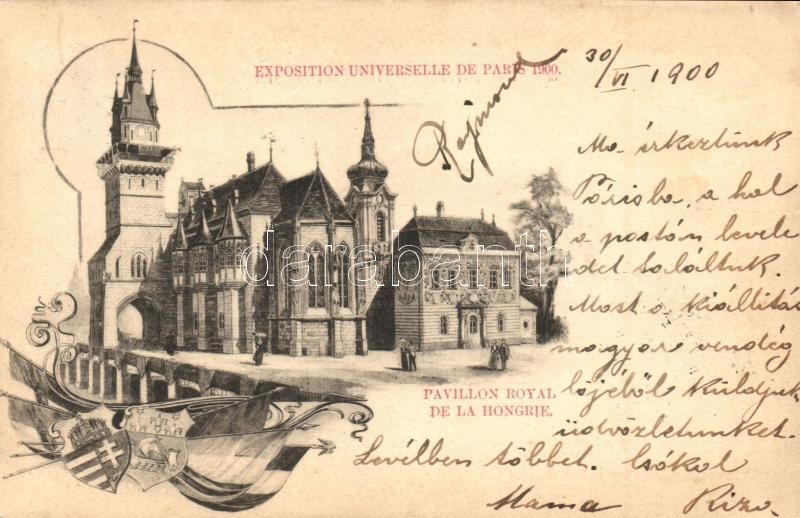 EXPOSITION UNIVERSELLE DE PARIS 1900.
30/VI 1900
Rajmond
Ma érkeztünk
Párisba, a hol
a postán levele
det találtuk.
Most a kiállitás
magyar vendég
lőjéből küldjuk
üdvözletünket.
Levélben többet. Csókol
Mama Riza.
PAVILLON ROYAL
DE LA HONGRIE.
darabanth